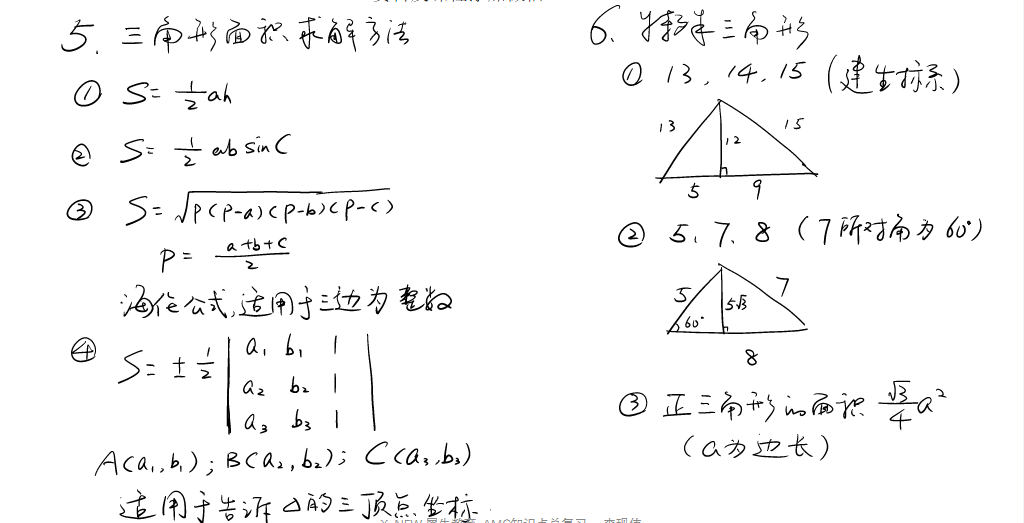 5. 三角形面积求解方法
① S= 1/2 ah
② S= 1/2 ab sinC
③ S=√P(P-a)(P-b)(P-c)
P= a+b+c/2
海伦公式,适用于三边为整数
④ S= ± 1/2 | a₁ b₁ 1 |
a₂ b₂ 1
a₃ b₃ 1
A(a₁,b₁); B(a₂,b₂); C(a₃,b₃)
适用于告诉△的三顶点坐标
6. 特殊三角形
① 13, 14, 15 (建坐标系)
13
12
15
5
9
② 5、7、8 (7所对角为60°)
5
7
5√3
60°
8
③ 正三角形的面积 √3/4 a²
(a为边长)